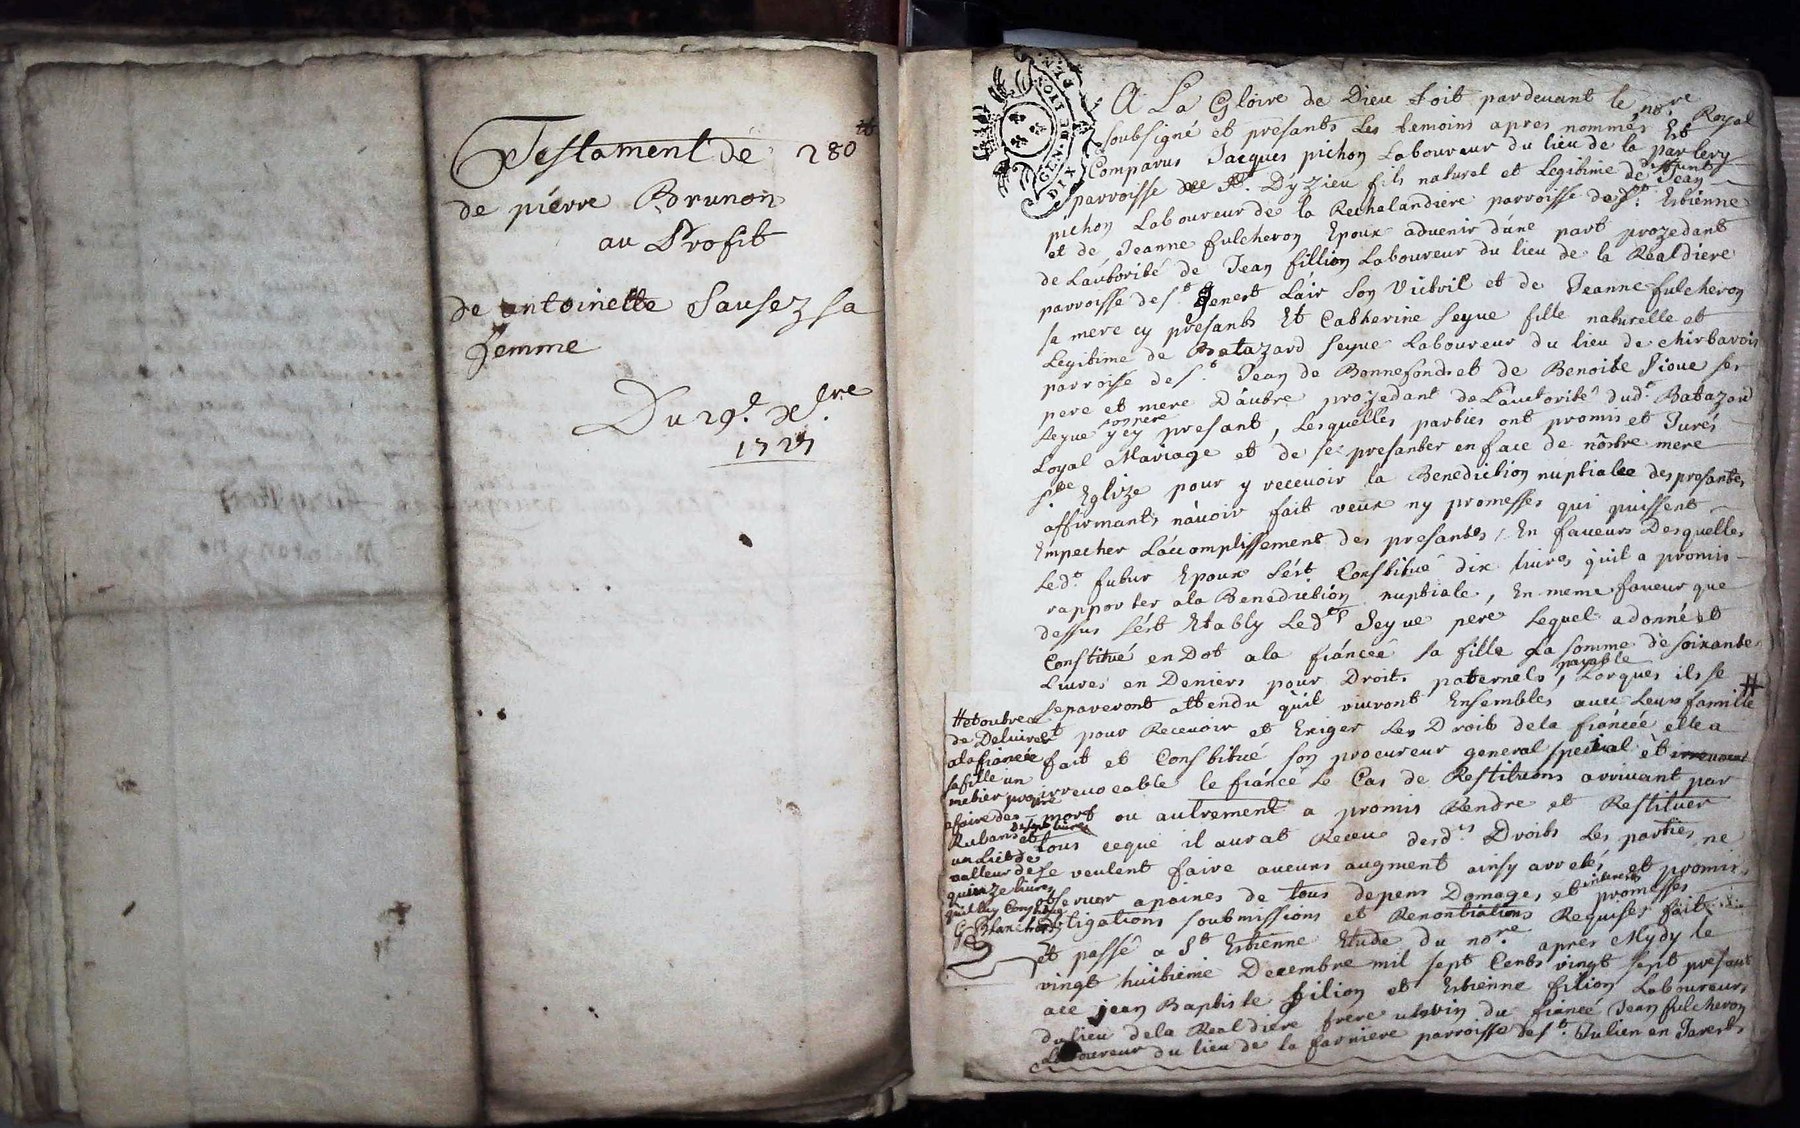 Testament de 280
de piérre Brunon
au Profit
de antoinette Sausez sa
femme
Du 29.e xbre.
1727
GEN. DE LYON
DIX DEN
A La Gloire de Dieu soit pardevant le nore. Royal
soubsigné et presants Les temoins apres nommés Et
Comparus Jacques pichon Laboureur du lieu de la
parroisse de Dyzieu fils natural et Legitime de deffunt Jean
pichon Laboureur de la Rechalandiere parroisse de St. Estienne
et de Jeanne fulcheron Epoux advenir d'une part prozedant
de Lautorité de Jean fillion Laboureur du lieu de la Réaldiere
parroisse de St. genest Lair son Vitril et de Jeanne fulcheron
sa mere cy presants Et Catherine seyve fille naturelle et
Legitime de Batazard seyve Laboureur du lieu de chirbavoin
parroisse de St. Jean de Bonnefonds et de Benoite Sioue ses
pere et mere D'autre prozedant de Lautorité dudt. Batazard
seyve son pere y cy presant, Lesquelles parties ont promis et Jurés
Loyal Mariage et de se presanter en face de nostre mere
Ste. Eglize pour y recevoir la Benediction nuptialee des presantes
affirmants n'avoir fait veux ny promesses qui puissent
Empecher L'accomplissement des presantes / En faveurs Desquelles
Ledt. futur Epoux s'est Constitué dix livres qu'il a promis
rapporter a la Benediction nuptiale, En meme faveur que
dessus s'est Etably Ledt. Seyve pere Lequel a donné et
Constitué en Dot a la fiancée sa fille La somme de soixante
Livres en Deniers pour Droits paternels, payable Lorques ils se
separeront attendu qu'il vivront Ensembles avec Leurs famille #
et pour Recevoir et Exiger Les Droits de la fiancée elle a
fait et Constitué son procureur general special et
irrevocable le fiancé Le Cas de Restitutions arrivant par
mort ou autrement a promis Rendre et Restituer
tous ceque il aurat Receu desdts. Droits Les parties ne
se veulent faire aucuns augment ainsy arretés et promis
observer a paines de tous depens Domages et interests promesses
obligations soubmissions et Renontiations Requises fait
et passé a St Estienne Etude du nore. aprés Mydy le
vingt huitieme Decembre mil sept Cents vingt sept presant
ace jean Baptiste filion et Estienne filion Laboureurs
du lieu de la Realdiere frere utervin du fiancé Jean fulcheron
Laboureur du lieu de la farniere parroisse de St. Julien en Jarests
# et outre ce
de Delivrer
a la fiancée
sa fille un
metier propre
a faire des
Rubans
de sept livres et
un Lict de
valleur de
quinze livres
quil luy Constitue
G. Blanchard